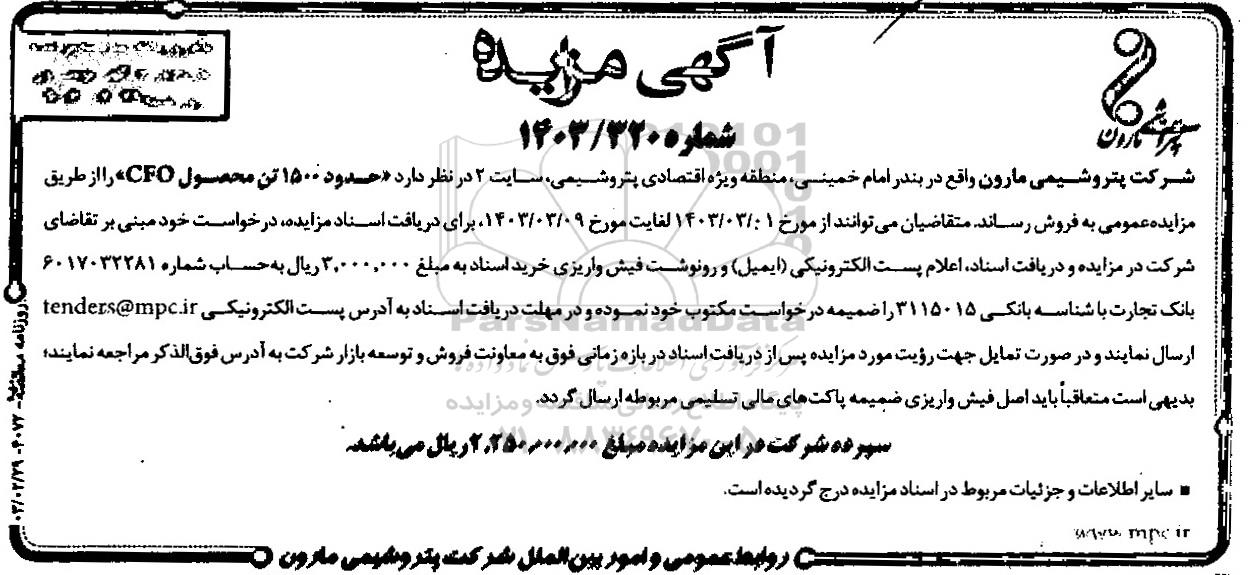 آگهی مزایده
شماره ۱۴۰۳/۳۲۰
پتروشیمی مارون
شرکت پتروشیمی مارون واقع در بندر امام خمینی، منطقه ویژه اقتصادی پتروشیمی، سایت ۲ در نظر دارد «حدود ۱۵۰۰ تن محصول CFO» را از طریق
مزایده عمومی به فروش رساند. متقاضیان می‌توانند از مورخ ۱۴۰۳/۰۳/۰۱ لغایت مورخ ۱۴۰۳/۰۳/۰۹، برای دریافت اسناد مزایده، درخواست خود مبنی بر تقاضای
شرکت در مزایده و دریافت اسناد، اعلام پست الکترونیکی (ایمیل) و رونوشت فیش واریزی خرید اسناد به مبلغ ۳,۰۰۰,۰۰۰ ریال به حساب شماره ۶۰۱۷۰۳۲۲۸۱
بانک تجارت با شناسه بانکی ۳۱۱۵۰۱۵ را ضمیمه درخواست مکتوب خود نموده و در مهلت دریافت اسناد به آدرس پست الکترونیکی tenders@mpc.ir
ارسال نمایند و در صورت تمایل جهت رؤیت مورد مزایده پس از دریافت اسناد در بازه زمانی فوق به معاونت فروش و توسعه بازار شرکت به آدرس فوق‌الذکر مراجعه نمایند؛
بدیهی است متعاقباً باید اصل فیش واریزی ضمیمه پاکت‌های مالی تسلیمی مربوطه ارسال گردد.
سپرده شرکت در این مزایده مبلغ ۲,۲۵۰,۰۰۰,۰۰۰ ریال می‌باشد.
■ سایر اطلاعات و جزئیات مربوط در اسناد مزایده درج گردیده است.
www.mpc.ir
روابط عمومی و امور بین‌الملل شرکت پتروشیمی مارون
روزنامه - ۴۰۷۲ - ۰۳/۰۲/۲۹
ParsNamadData
پایگاه اطلاع رسانی مناقصه و مزایده